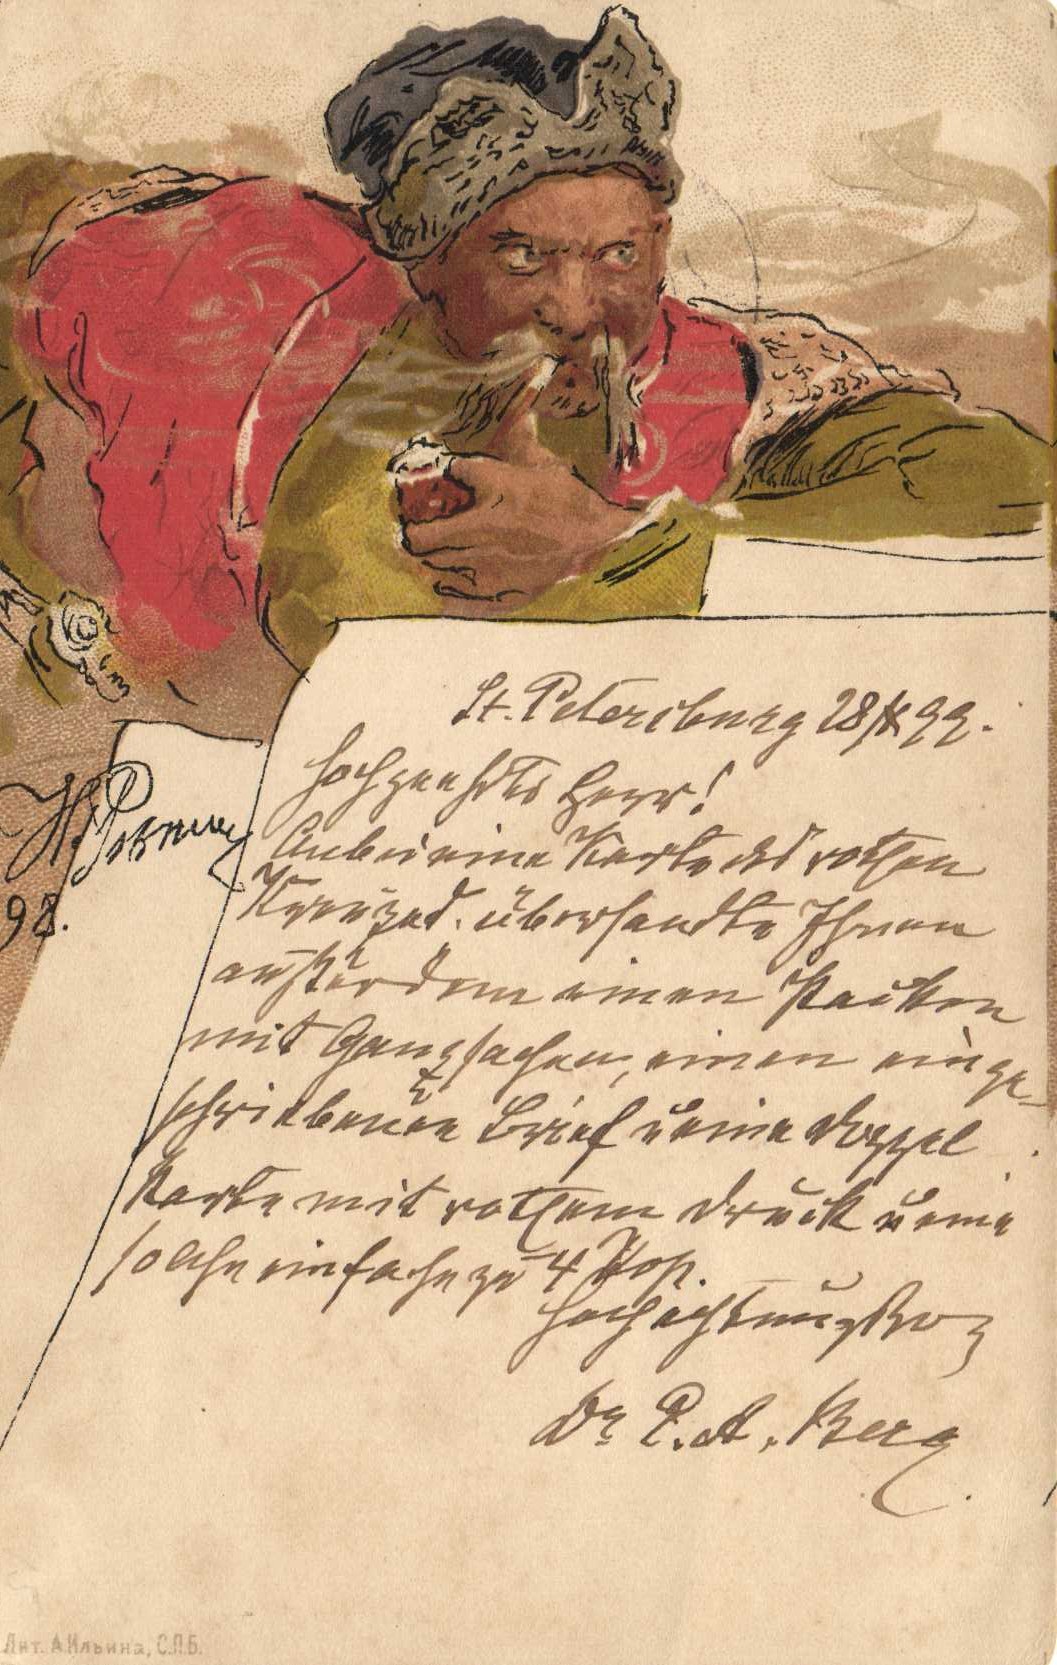 St. Petersburg 28/X 99.
Hochgeehrter Herr!
Anbei eine Karte des rothen
Kreuzes. übersandte Ihnen
außerdem einen Packen
mit Ganzsachen, einen einge-
schriebenen Brief u eine Doppel
Karte mit rothem Druck u eine
solche einfache zu 4 Kop.
Hochachtungsvoll
Dr. P. A. Berg
98.
Лит. А. Ильина, С.П.Б.